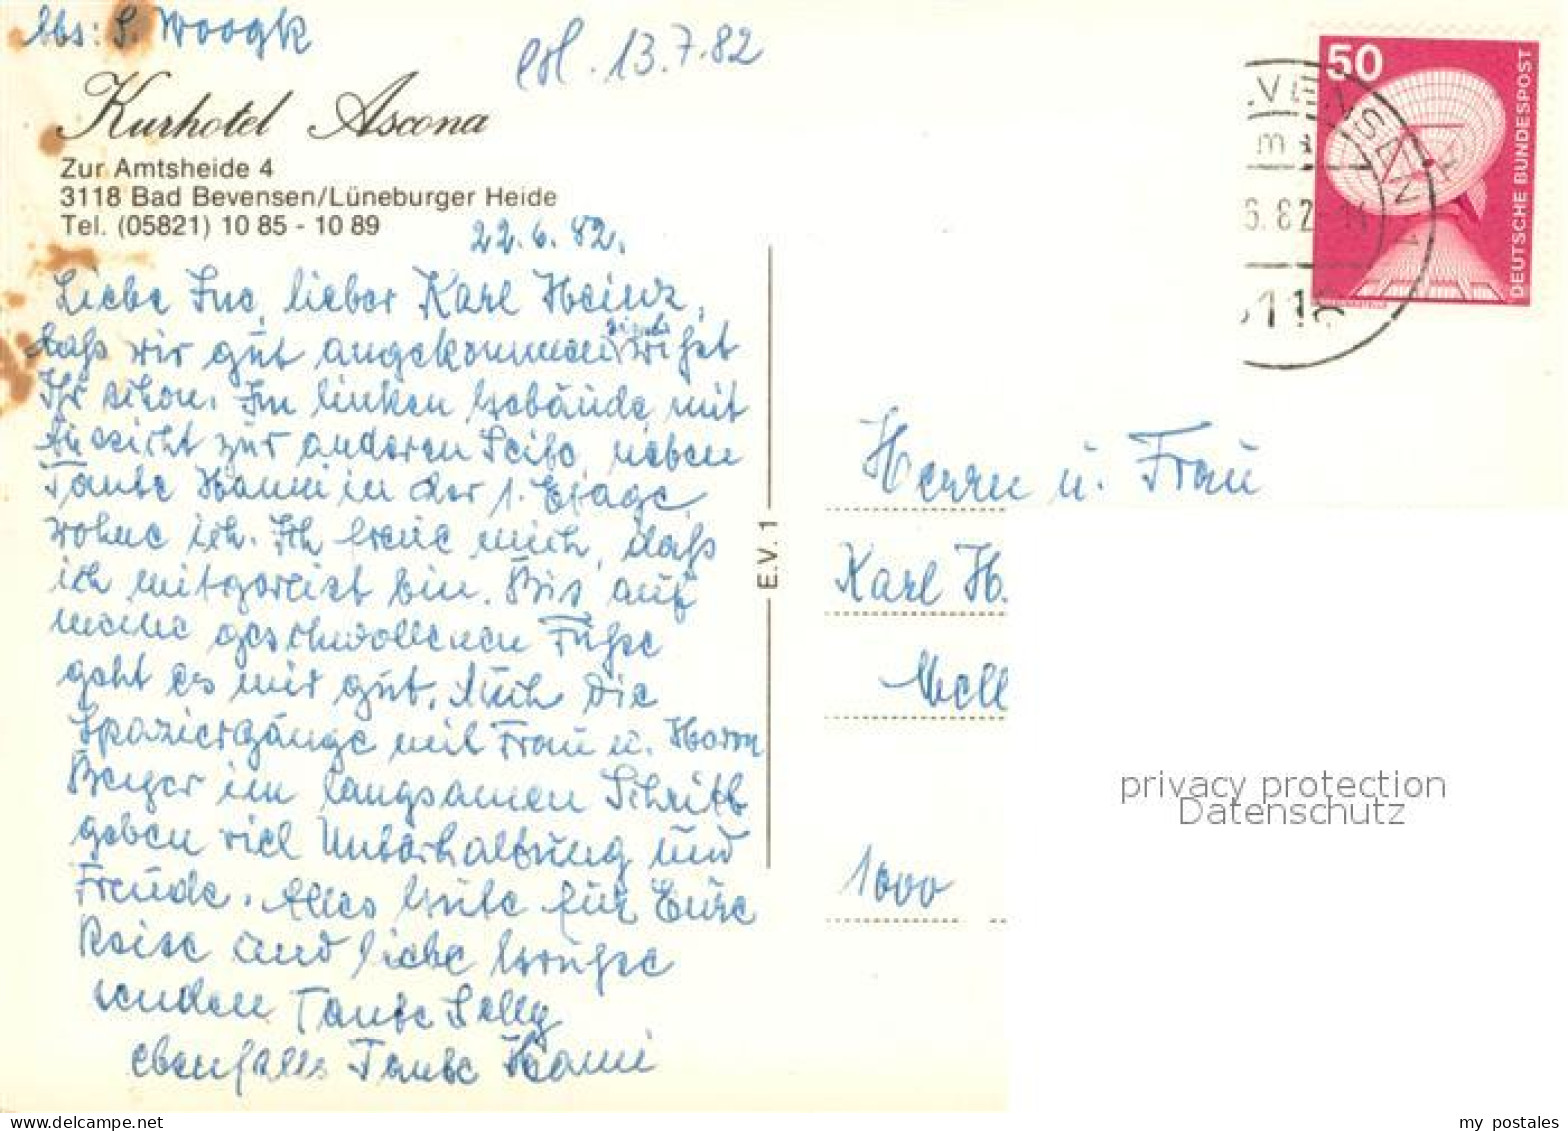 Abs: S. Woogk
erl. 13.7.82
Kurhotel Ascona
Zur Amtsheide 4
3118 Bad Bevensen/Lüneburger Heide
Tel. (05821) 10 85 - 10 89
22.6.82.
Liebe Inc, lieber Karl Heinz,
daß wir gut angekommen sind wißt
Ihr schon. Im linken Gebäude, mit
Aussicht zur anderen Seite, neben
Tante Hanni in der 1. Etage,
wohne ich. Ich freue mich, daß
ich mitgereist bin. Bis auf
meine geschwollenen Füße
geht es mir gut. Auch die
Spaziergänge mit Frau u. Herrn
Berger im langsamen Schritt
geben viel Unterhaltung und
Freude. Alles Gute für Eure
Reise und liebe Grüße
senden Tante Selly
ebenfalls Tante Hanni
E.V. 1
50
DEUTSCHE BUNDESPOST
.VENSEN 1
6.82-
Herrn u. Frau
Karl H.
1000
privacy protection
Datenschutz
my postales